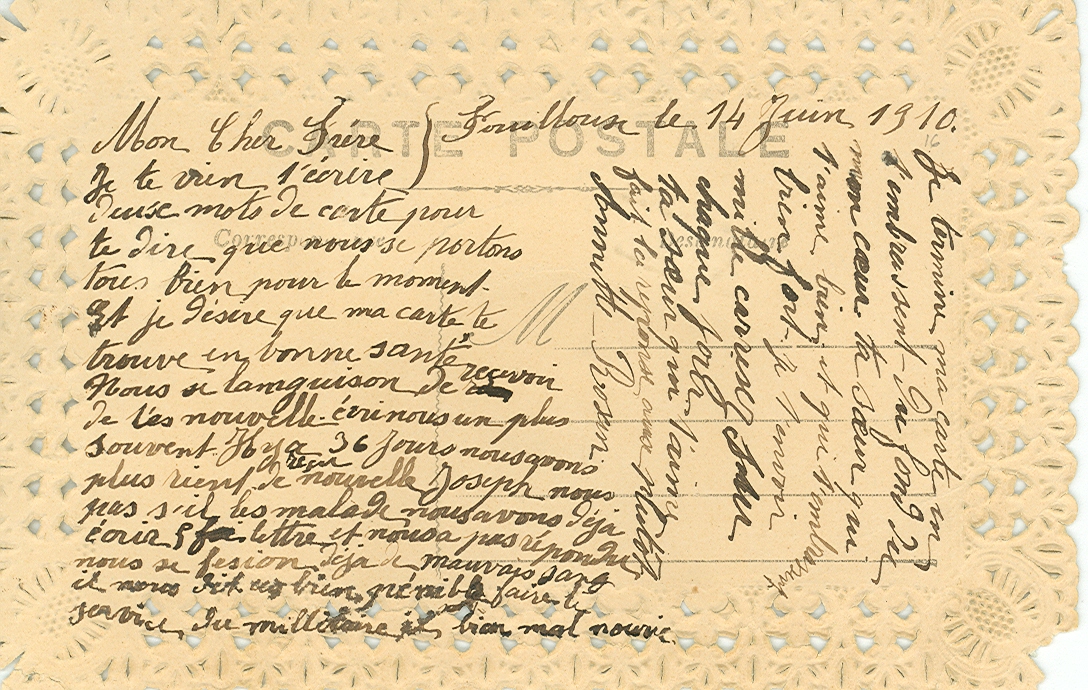 Fouillouse le 14 Juin 1910.
CARTE POSTALE
Mon Cher Frére
Je te vien t'écrire
deuse mots de carte pour
te dire que nous se portons
tous bien pour le moment.
Et je désire que ma carte te
trouve en bonne santé
Nous se languison de recevoir
de tes nouvelle écrinous un plus
souvent Il y a 36 Jours nous avons
plus rient reçu de nouvelle Joseph nous
pas s'il les malade nous avons déja
écrir 5 lettre et nous a pas répondu
nous se fesion déja de mauvais sang
il nous dit bien pénible faire le
service du millitaire bien mal nourie
Correspondance
Destinataire
M
Je termine ma carte en
t'embrassent du fond de
mon cœur ta sœur qui
t'aime bien et qui t'embrassent
bien fort Je t'envoir
mille caresse
chaque fois
ta sœur qui t'aime
fait la réponse au plutôt
Rosen